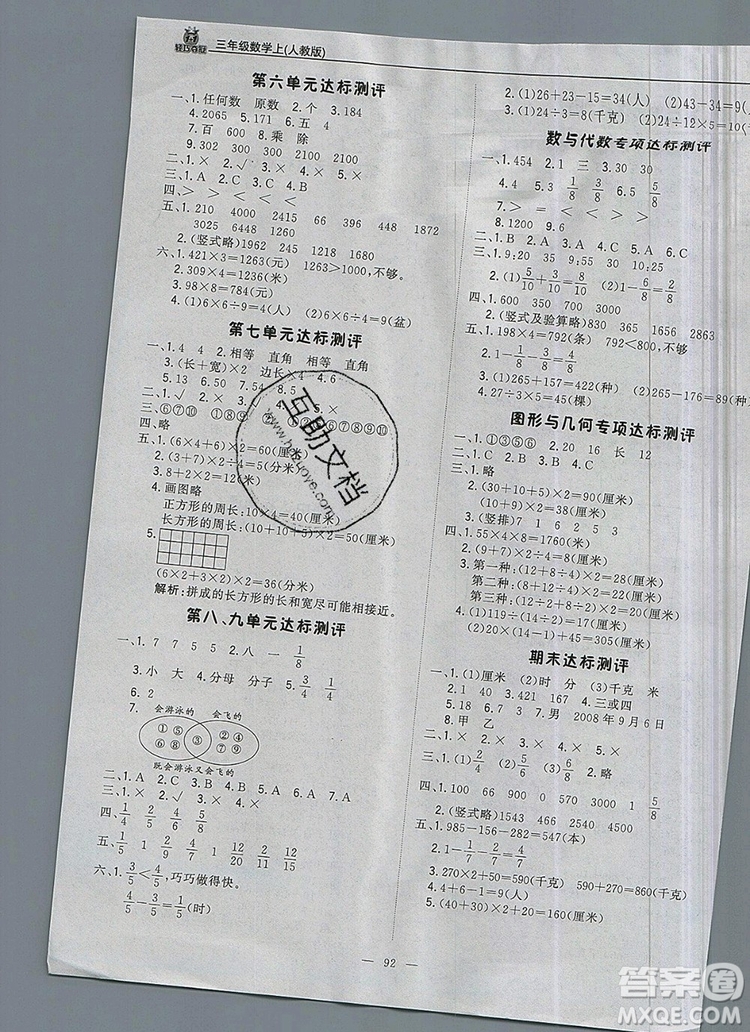 轻巧夺冠 三年级数学上(人教版)
第六单元达标测评
一、1.任何数 原数 2.个 3.184
4.2065 5.171 6.五 4
7.百 600 8.乘 除
9.302 300 2100 2100
二、1.× 2.√ 3.× 4.×
三、1.A 2.B 3.C 4.B 5.C
四、> < > >
五、1.210 4000 2415 66 396 448 1872
3025 6448 2800 1648
2.(竖式略)1962 245 1030 900
六、1.421×3=1263(千米) 1263>1000,不够。
2.309×4=1236(米)
3.98×8=784(元)
4.(1)6×6÷9=4(人) (2)6×6÷4=9(盆)
第七单元达标测评
一、1.4 4 2.相等 直角 相等 直角
3.(长+宽)×2 边长×4 4.
5.13 50 6.20 7.54 8.
二、1.× 2.√ 3.× 4.×
三、⑥⑦⑩ ①⑧⑨ ⑥⑦⑧⑨⑩
四、略
五、1.(6×4+6)×2=60(厘米)
2.(6×4+6×2)=(分米)
3.8+2×2=12(米)
4.画图略
正方形的周长:10×4=40(厘米)
长方形的周长:(10+10+5)×2=50(厘米)
5.
(6×2+3×2)×2=36(分米)
解析:拼成的长方形的长和宽尽可能相接近。
第八、九单元达标测评
一、1.7 7 5 5 2.8 — 1/8
3.小 大 4.分母 分子 5.1/4 1/4
6.2
7. 会游泳的 会飞的
①⑤ ③ ②④
⑥⑧ ⑦⑨
既会游泳又会飞的
二、1.A 2.C 3.B 4.A 5.A
三、1.× 2.√ 3.× 4.× 5.×
四、1/2 2/4 5/9 4/8
五、2/5 5/6 1/2 1 12/20 12/15 2/11
六、1.3/5<4/5,巧巧做得快。
4/5-3/5=1/5(时)
2.(1)26+23-15=34(人) (2)43-34=9(
3.(1)24÷3=8(千克) (2)24÷12×5=10(
数与代数专项达标测评
一、1.454 2.1 三 3.30 30
4.2 5. 1/8 3/8 6.√ 5/8
7.> > = <
8.1200 9.6
二、1.B 2.A 3.B 4.C
三、1.9:20 35 9:55 30 10:25
2.(1)5/10+3/10=8/10 (2)1-6/8=2/8
四、1.600 350 700 5000
2.(竖式及验算略)
五、1.198×4=792(条) 792>700,不够。
2.1-1/8-4/8=3/8
3.(1)265+157=422(种) (2)265-176=89(种)
4.27÷3×5=45(棵)
图形与几何专项达标测评
一、1.①③⑤⑥ 2.20 16 长 12
二、1.C 2.D 3.C
三、1.略
2.(30+10+5)×2=90(厘米)
(10+10+5)×2=50(厘米)
3.(竖排)7 1 6 2 5 3
四、1.55×4×8=1760(米)
2.(9+7)×2÷4=8(厘米)
3.第一种:(12+8)×2=40(厘米)
第二种:(8+12)×2=40(厘米)
第三种:(9+12)×2=42(厘米)
4.(1)119÷(14÷2)=17(厘米)
(2)20×(14÷2+15÷2+45)=305(厘米)
期末达标测评
一、1.(1)厘米 (2)时 分 (3)千克 米
2.8 40 3.421 167 4.三或四
5.18 6.8 3 7.男 2008年9月6日
8.甲 乙
二、1.C 2.B 3.C 4.A
三、1.(1)2/4 (2)2/6 (3)5/8 2.略
四、1.100 66 900 0 570 3000 1 5/8
2.(竖式略)1543 544 1920
五、1.985-156-282=547(本)
2.1-4/9-1/9=4/9
3.270×2+50=590(千克) 590+270=860(千克)
4.9×4÷4=9(人)
5.(40+30+10)×2=160(厘米)
— 92 —
互助文档
www.hzuoye.com
答案圈
MXQE.COM